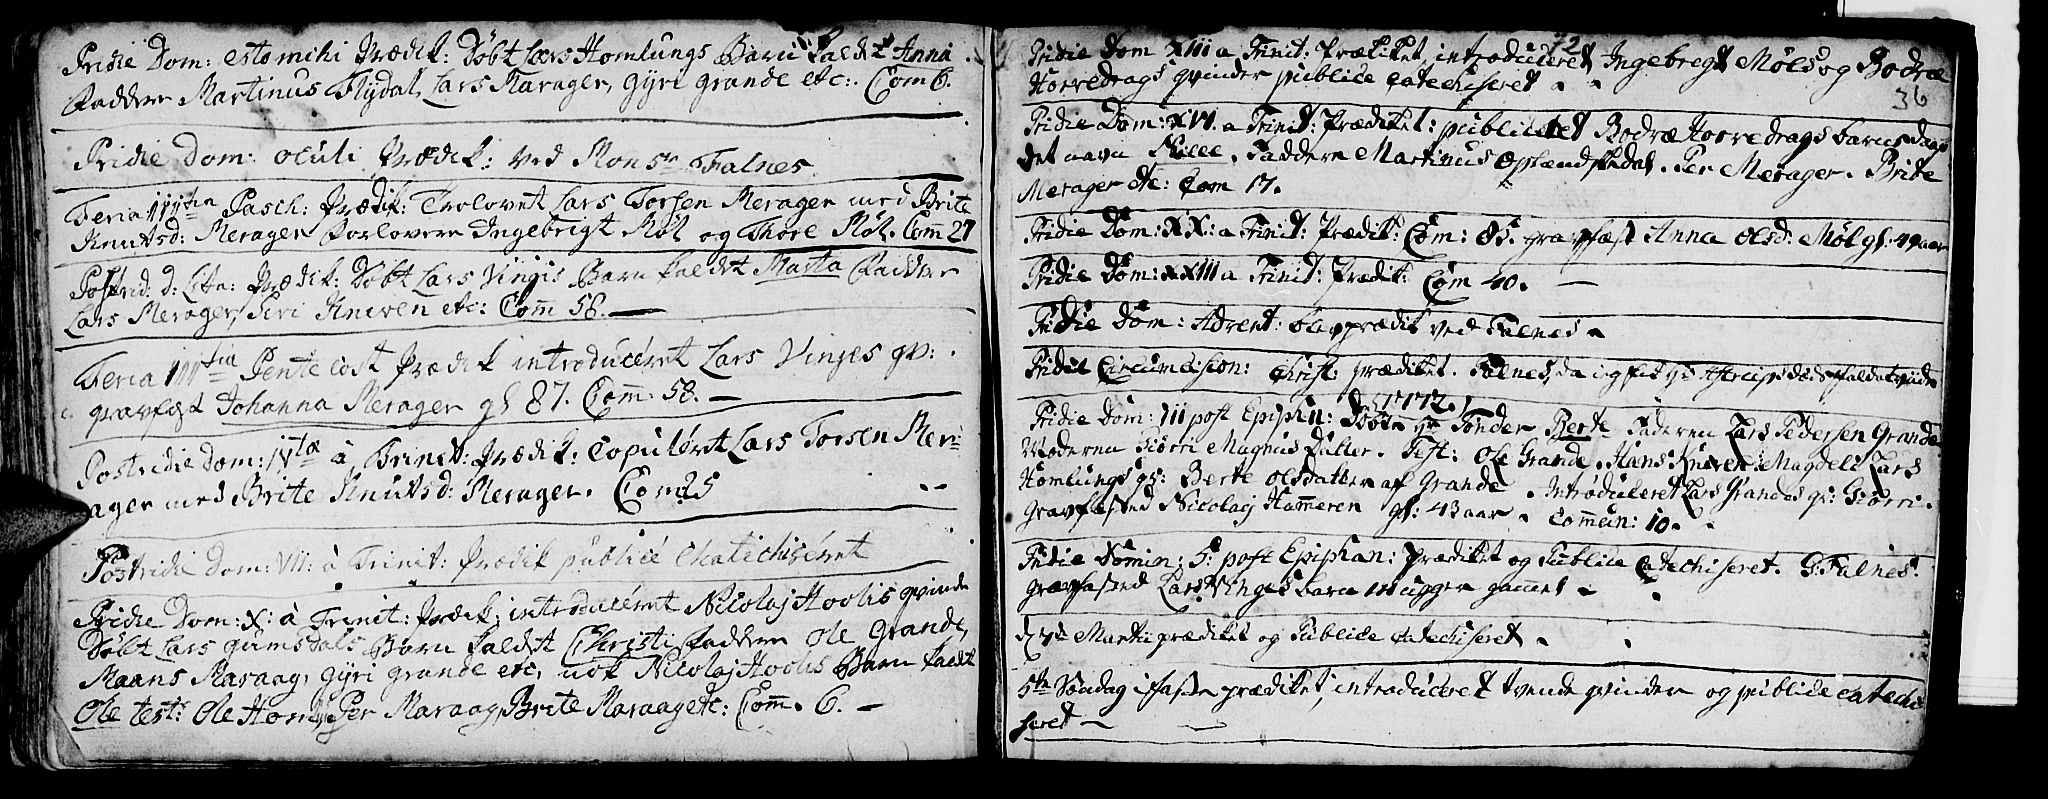 Pridie Dom: estomihi Prædik: Døbt Lars Homlungs Barn kaldt Anna
Faddere Martinus Flÿdal, Lars Marager, Gÿri Grande etc: Com 6.
Pridie Dom: Oculi Prædik: ved Monsr Falnes
Feria IIItia Pasch: Prædik: Trolovet Lars Torsen Merager med Brite
Knutsd: Merager Forlovere Ingebrigt Møl og Thore Møl. Com̄ 27
Postrid: d: Prædik: Døbt Lars Vinges Barn kaldet Marta Faddere
Lars Merager, Siri Kneven etc: Com̄ 58.
Feria IIItia Pentecost Prædik introduceret Lars Vinges qv:
gravfæst Johanna Merager gl 87. Com̄: 58.
Postridie Dom: IVta à Trinit: Prædik: Copuleret Lars Torsen Mer
ager med Brite Knutsd: Merager. Com: 25
Postridie Dom: VII: à Trinit: Prædik publicè Catechiseret
Pridie Dom: X: à Trinit: Prædik: introduceret Nicolaj Hoolis qvinde
Døbt Lars Gumsdals Barn kaldt Christi Faddere Ole Grande,
Maans Maraag, Gÿri Grande etc, nok Nicolaj Hoolis Barn kaldt
Ole test: Ole Per Maraag, Brite Maraag etc: Com̄. 6.
72
Pridie Dom XIII a Trinit: Prædiket, introduceret Ingebregt Møls og Bodræ
Horredrags qvinder publice catechiseret
36
Pridie Dom: XVI. a Trinit: Prædiket: publiceret Bodræ Horredrags barns daab
det navn Nille. Faddere Martinus Per Merager. Brite
Merager etc: Com 17.
Pridie Dom: XX: a Trinit: Prædik: Com: 85. gravfæst Anna Olsd: Møl gl: 49 aar
Pridie Dom: XXIII a Trinit: Prædik: Com 40.
Pridie Dom: Advent: blev prædik ved Falnes
Pridie Circumcision: Christ: prædiket. Falnes, da
1772.
Pridie Dom: III post Epiphan: Døbt Berte Faderen Lars Pedersen Grande
Moderen Siørri Magnus Datter. Test: Ole Grande, Hans Kneven: Magdeli Lars
Homlungs qv: Berte Olsdatter af Grande. Introduceret Lars Grandes qv: Siørri.
Gravfæsted Nicolaj Ham̄eren gl: 43 aar. Com̄un: 10.
Pridie Domin: 5: post Epiphan: Prædiket og Publice Catechiseret. S: Falnes.
Gravfæsted Lars Vinges barn uger gam̄el
d 7de Martii prædiket og Publice catechiseret
5te Søndag i Faste prædiket, introduceret tvende qvinder og publice catechi
seret